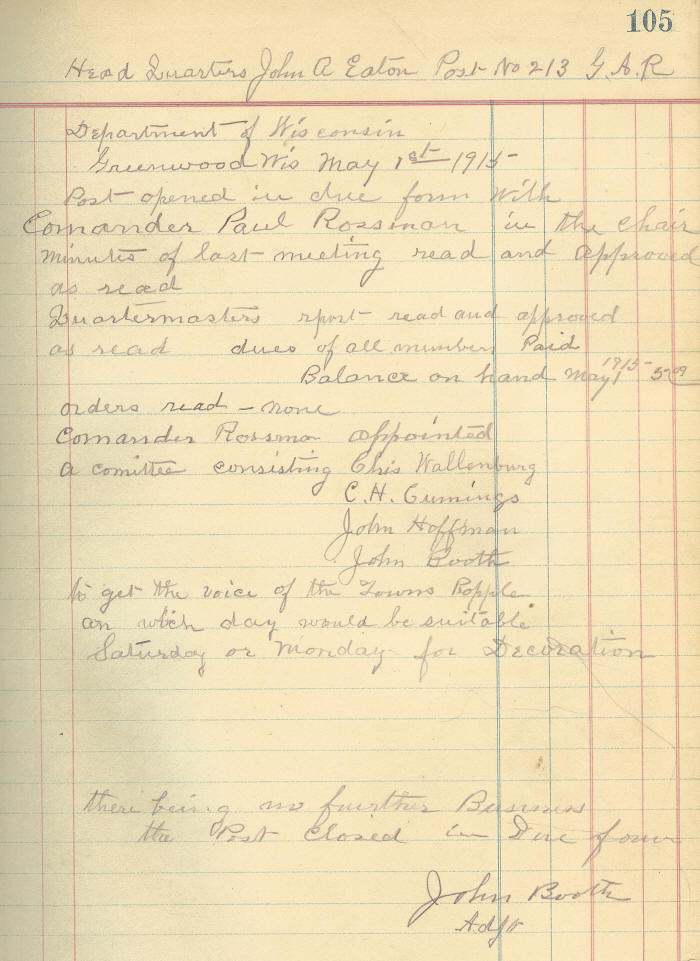 105
Head Quarters John A Eaton Post No 213 G.A.R
Department of Wisconsin
Greenwood Wis May 1st 1915
Post opened in due form with
Comander Paul Rossman in the chair
minutes of last meeting read and approved
as read
Quartermasters rport read and approved
as read dues of all members Paid
Balance on hand May 1 1915
orders read - none
Comander Rossman appointed
a comittee consisting Chis Wallenburg
C.H. Cumings
John Hoffman
John Booth
to get the voice of the Towns Popple
on which day would be suitable
Saturday or Monday for Decoration
there being no further Business
the Post Closed in Due form
John Booth
Adjt